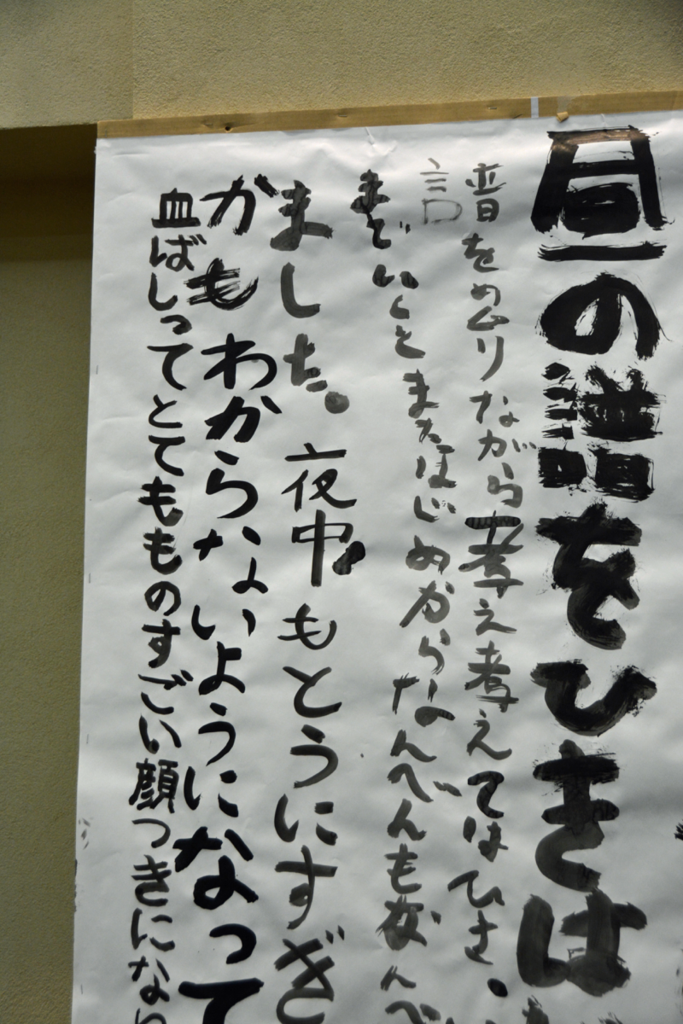 昼の譜をひきは
譜をめくりながら考え考えてはひき
までいくとまたはじめからなんべんもなんべ
ました。夜中もとうにすぎ
かもわからないようになって
血ばしってとてもものすごい顔つきになり